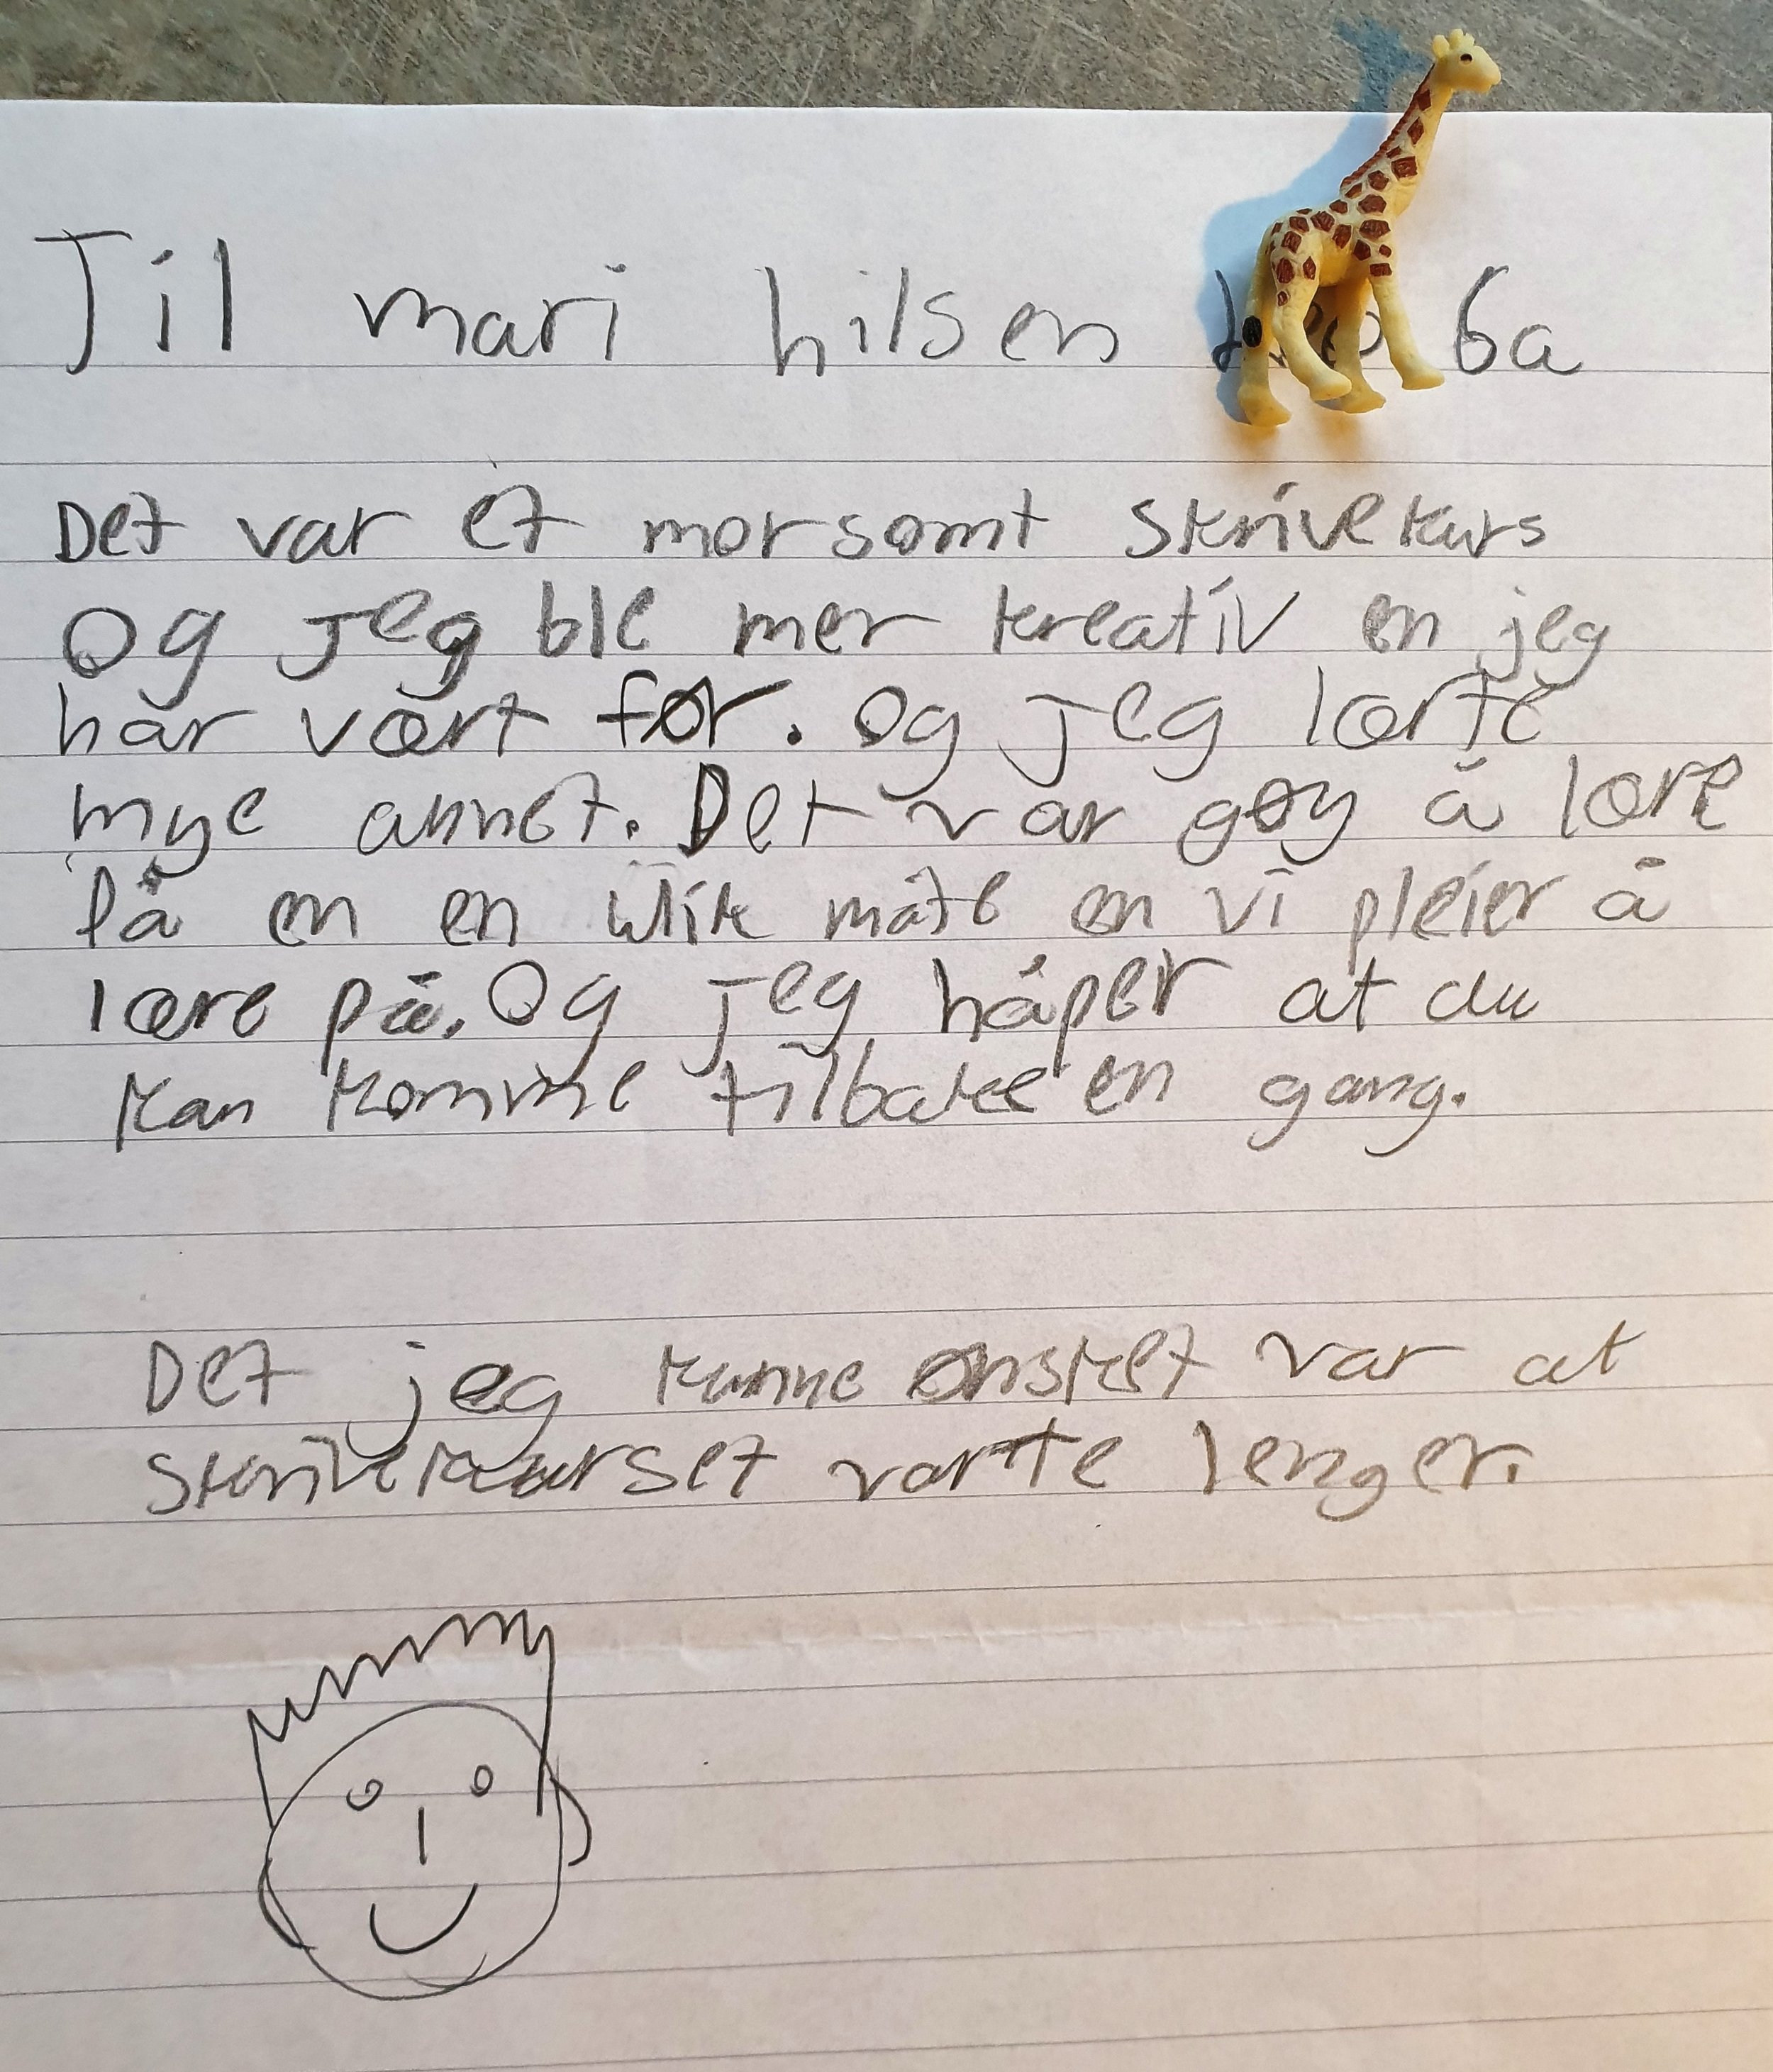 Til mari hilsen 6a
Det var et morsomt skrivekurs
Og jeg ble mer kreativ en jeg
har vært før. Og jeg lærte
mye annet. Det var gøy å lære
På en en ulik måte en vi pleier å
lære på. Og jeg håper at du
kan komme tilbake en gang.
Det jeg kunne ønsket var at
skrivekurset varte lenger.